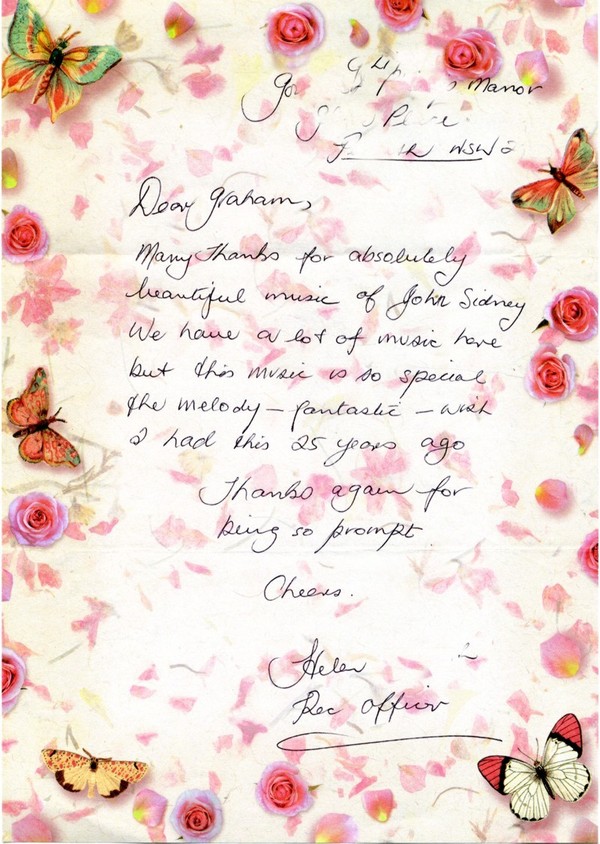 Manor
NSW 2
Dear Graham,
Many Thanks for absolutely
beautiful music of John Sidney
We have a lot of music here
but this music is so special
the melody – fantastic – wish
I had this 25 years ago
Thanks again for
being so prompt.
Cheers.
Helen
Rec Officer